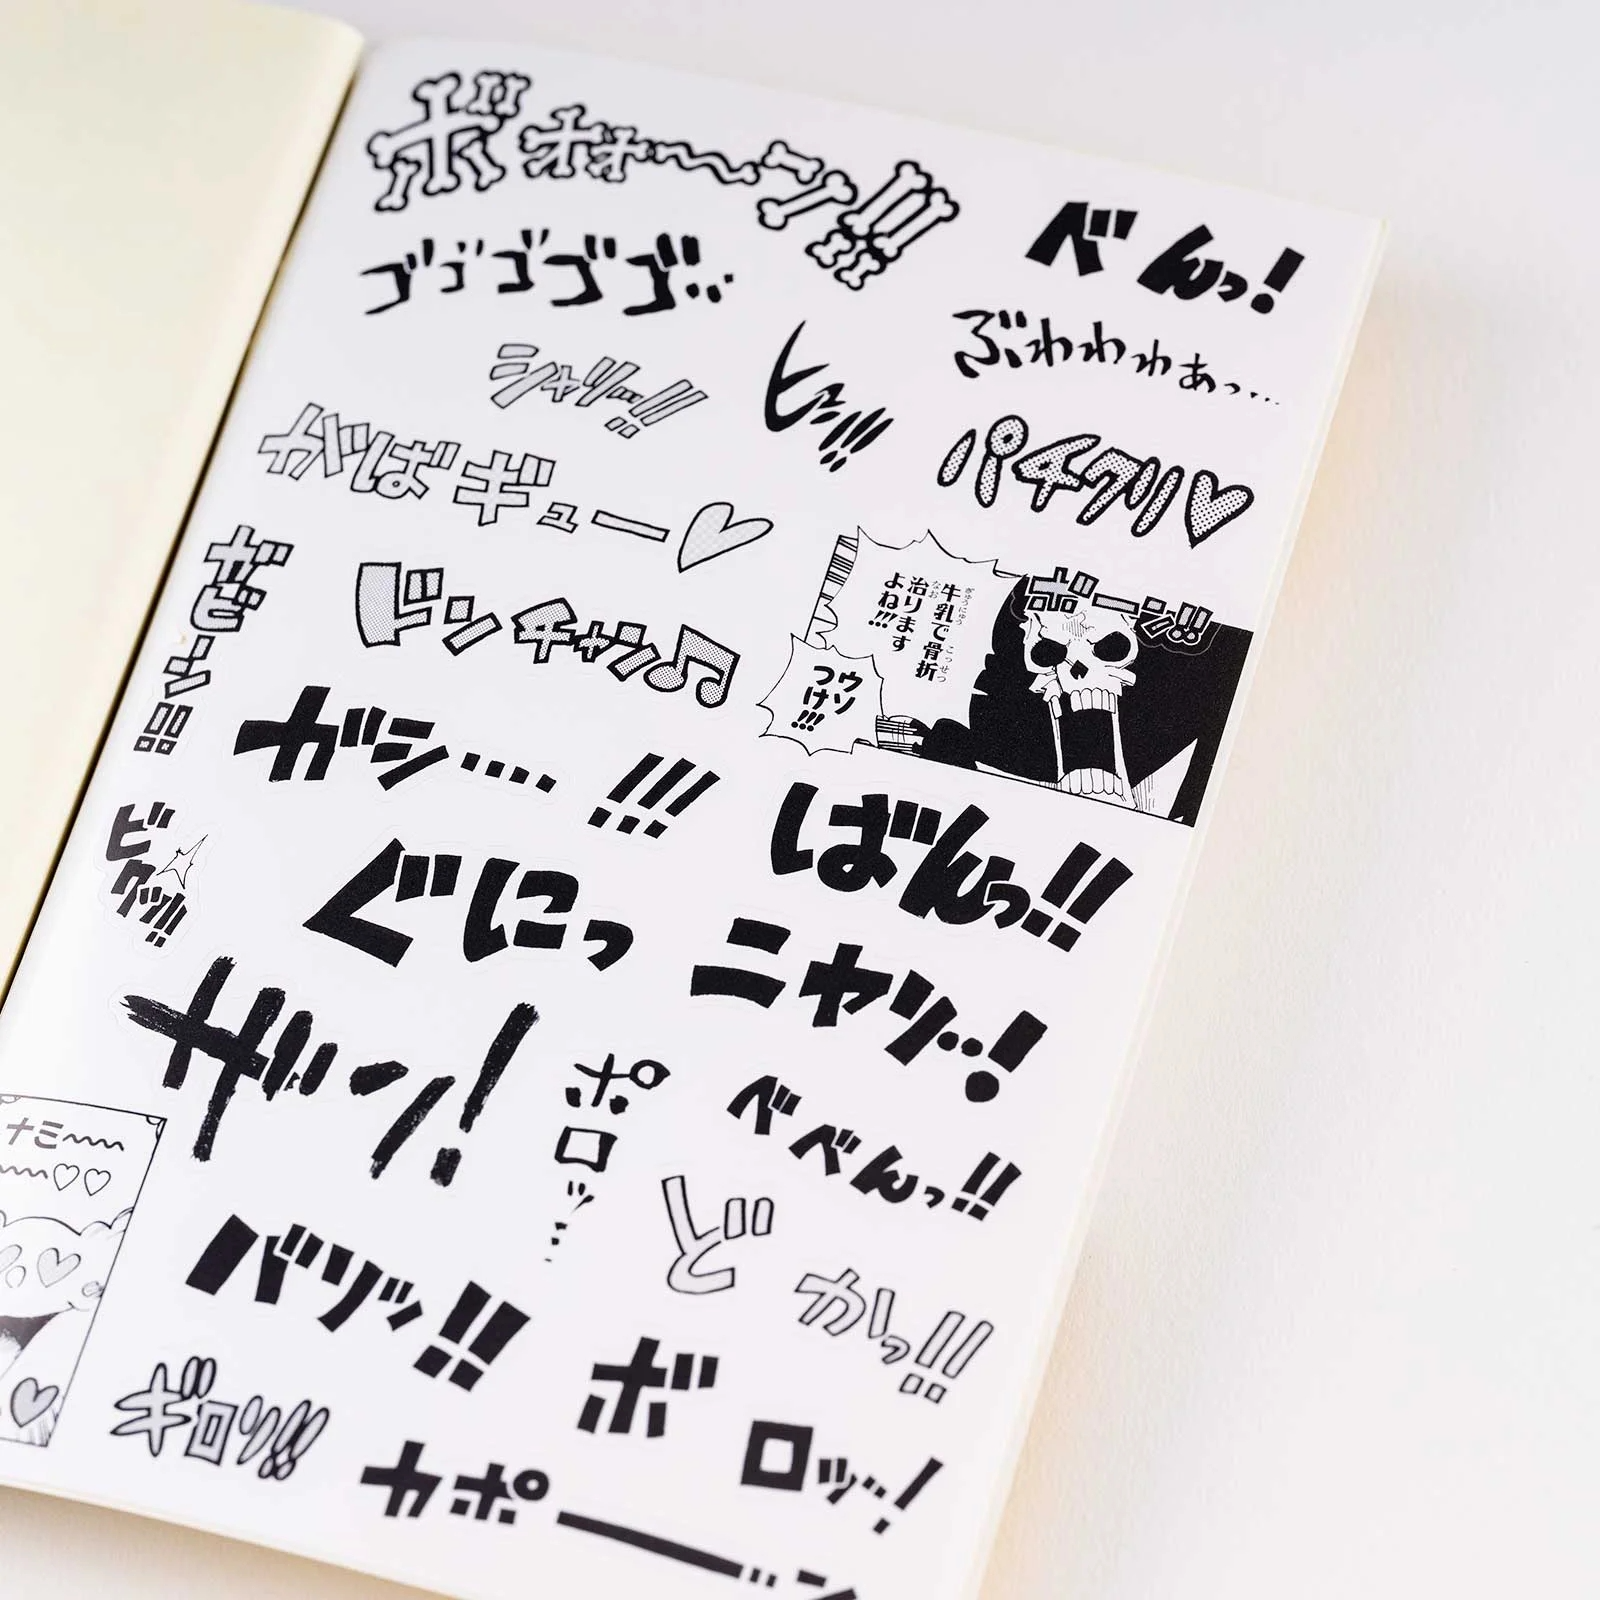 ボォォ〜ン!!
べんっ!
ゴゴゴゴゴ…
ぶわわわぁっ…
シャリッ…!!
ヒュン!!!
パチクリ♡
ずばギュー♡
ガビーン!!
ブンチャン♪
牛乳で骨折
治ります
よね!!!
ぎゅうにゅう
こっせつ
なお
ウソ
つけ!!!
ガーン!!
ガシ…!!!
ばんっ!!
ビクッ!!
ぐにっ
ニヤリ…!
ザン!
ポロッ…
べべんっ!!
ナミ〜〜
〜〜♡♡
どかっ!!
バリッ!!
ボロッ…!
ギロリ!!
カポーン